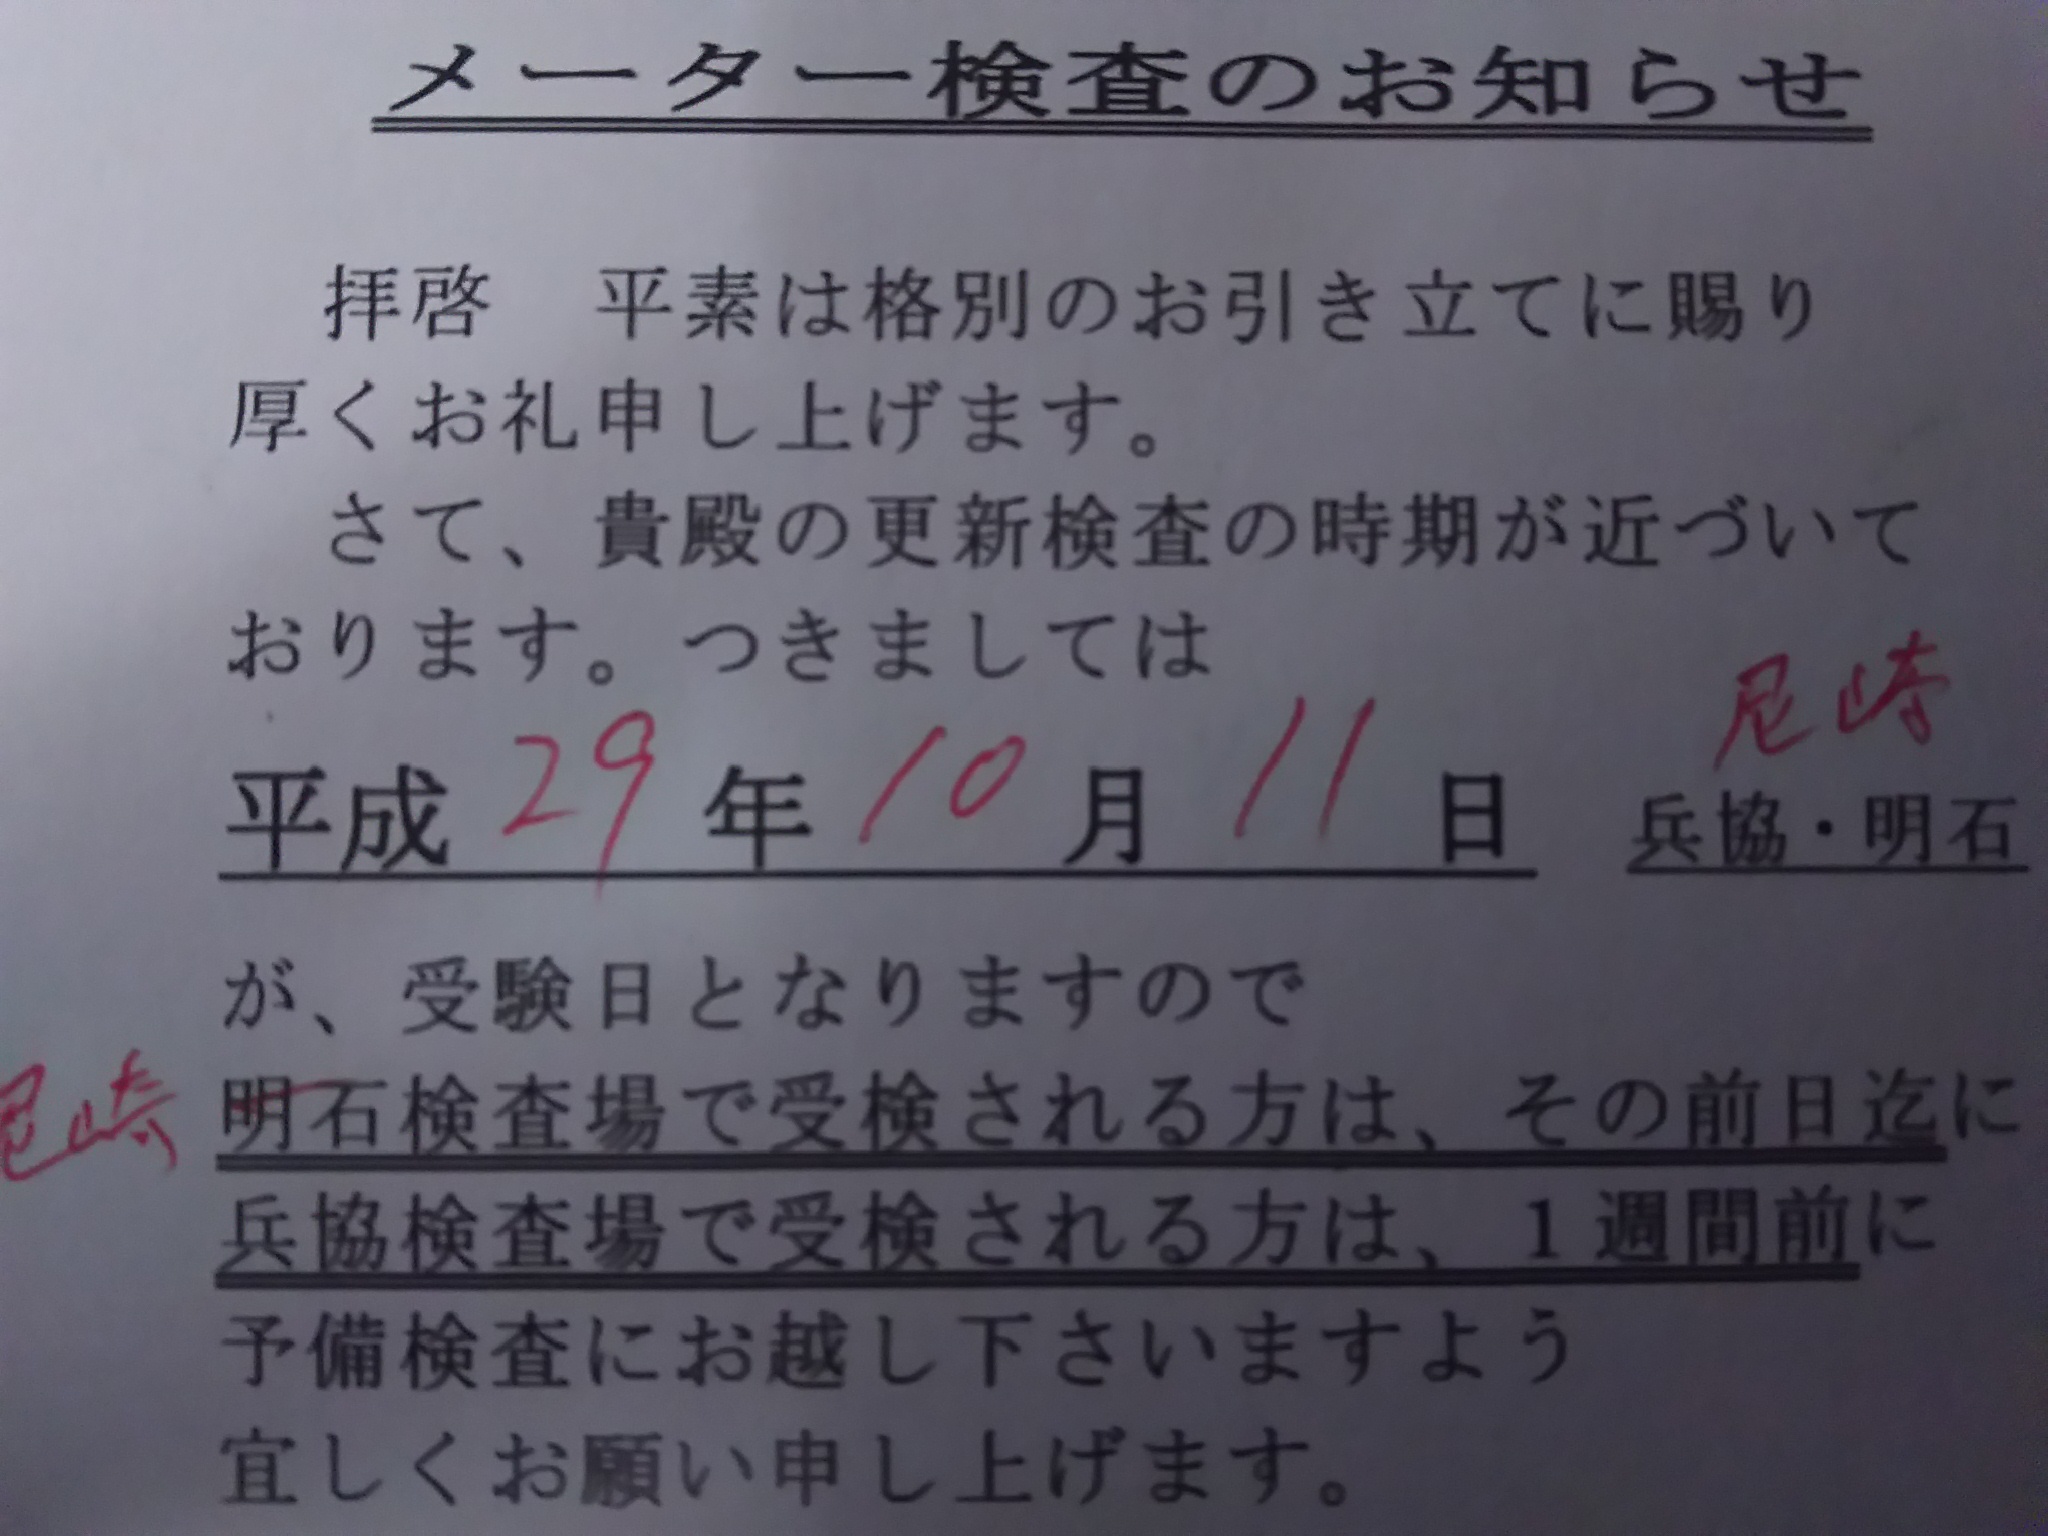 メーター検査のお知らせ
拝啓　平素は格別のお引き立てに賜り
厚くお礼申し上げます。
さて、貴殿の更新検査の時期が近づいて
おります。つきましては
尼崎
平成 29 年 10 月 11 日　兵協・明石
が、受験日となりますので
尼崎 明石検査場で受検される方は、その前日迄に
兵協検査場で受検される方は、1週間前に
予備検査にお越し下さいますよう
宜しくお願い申し上げます。